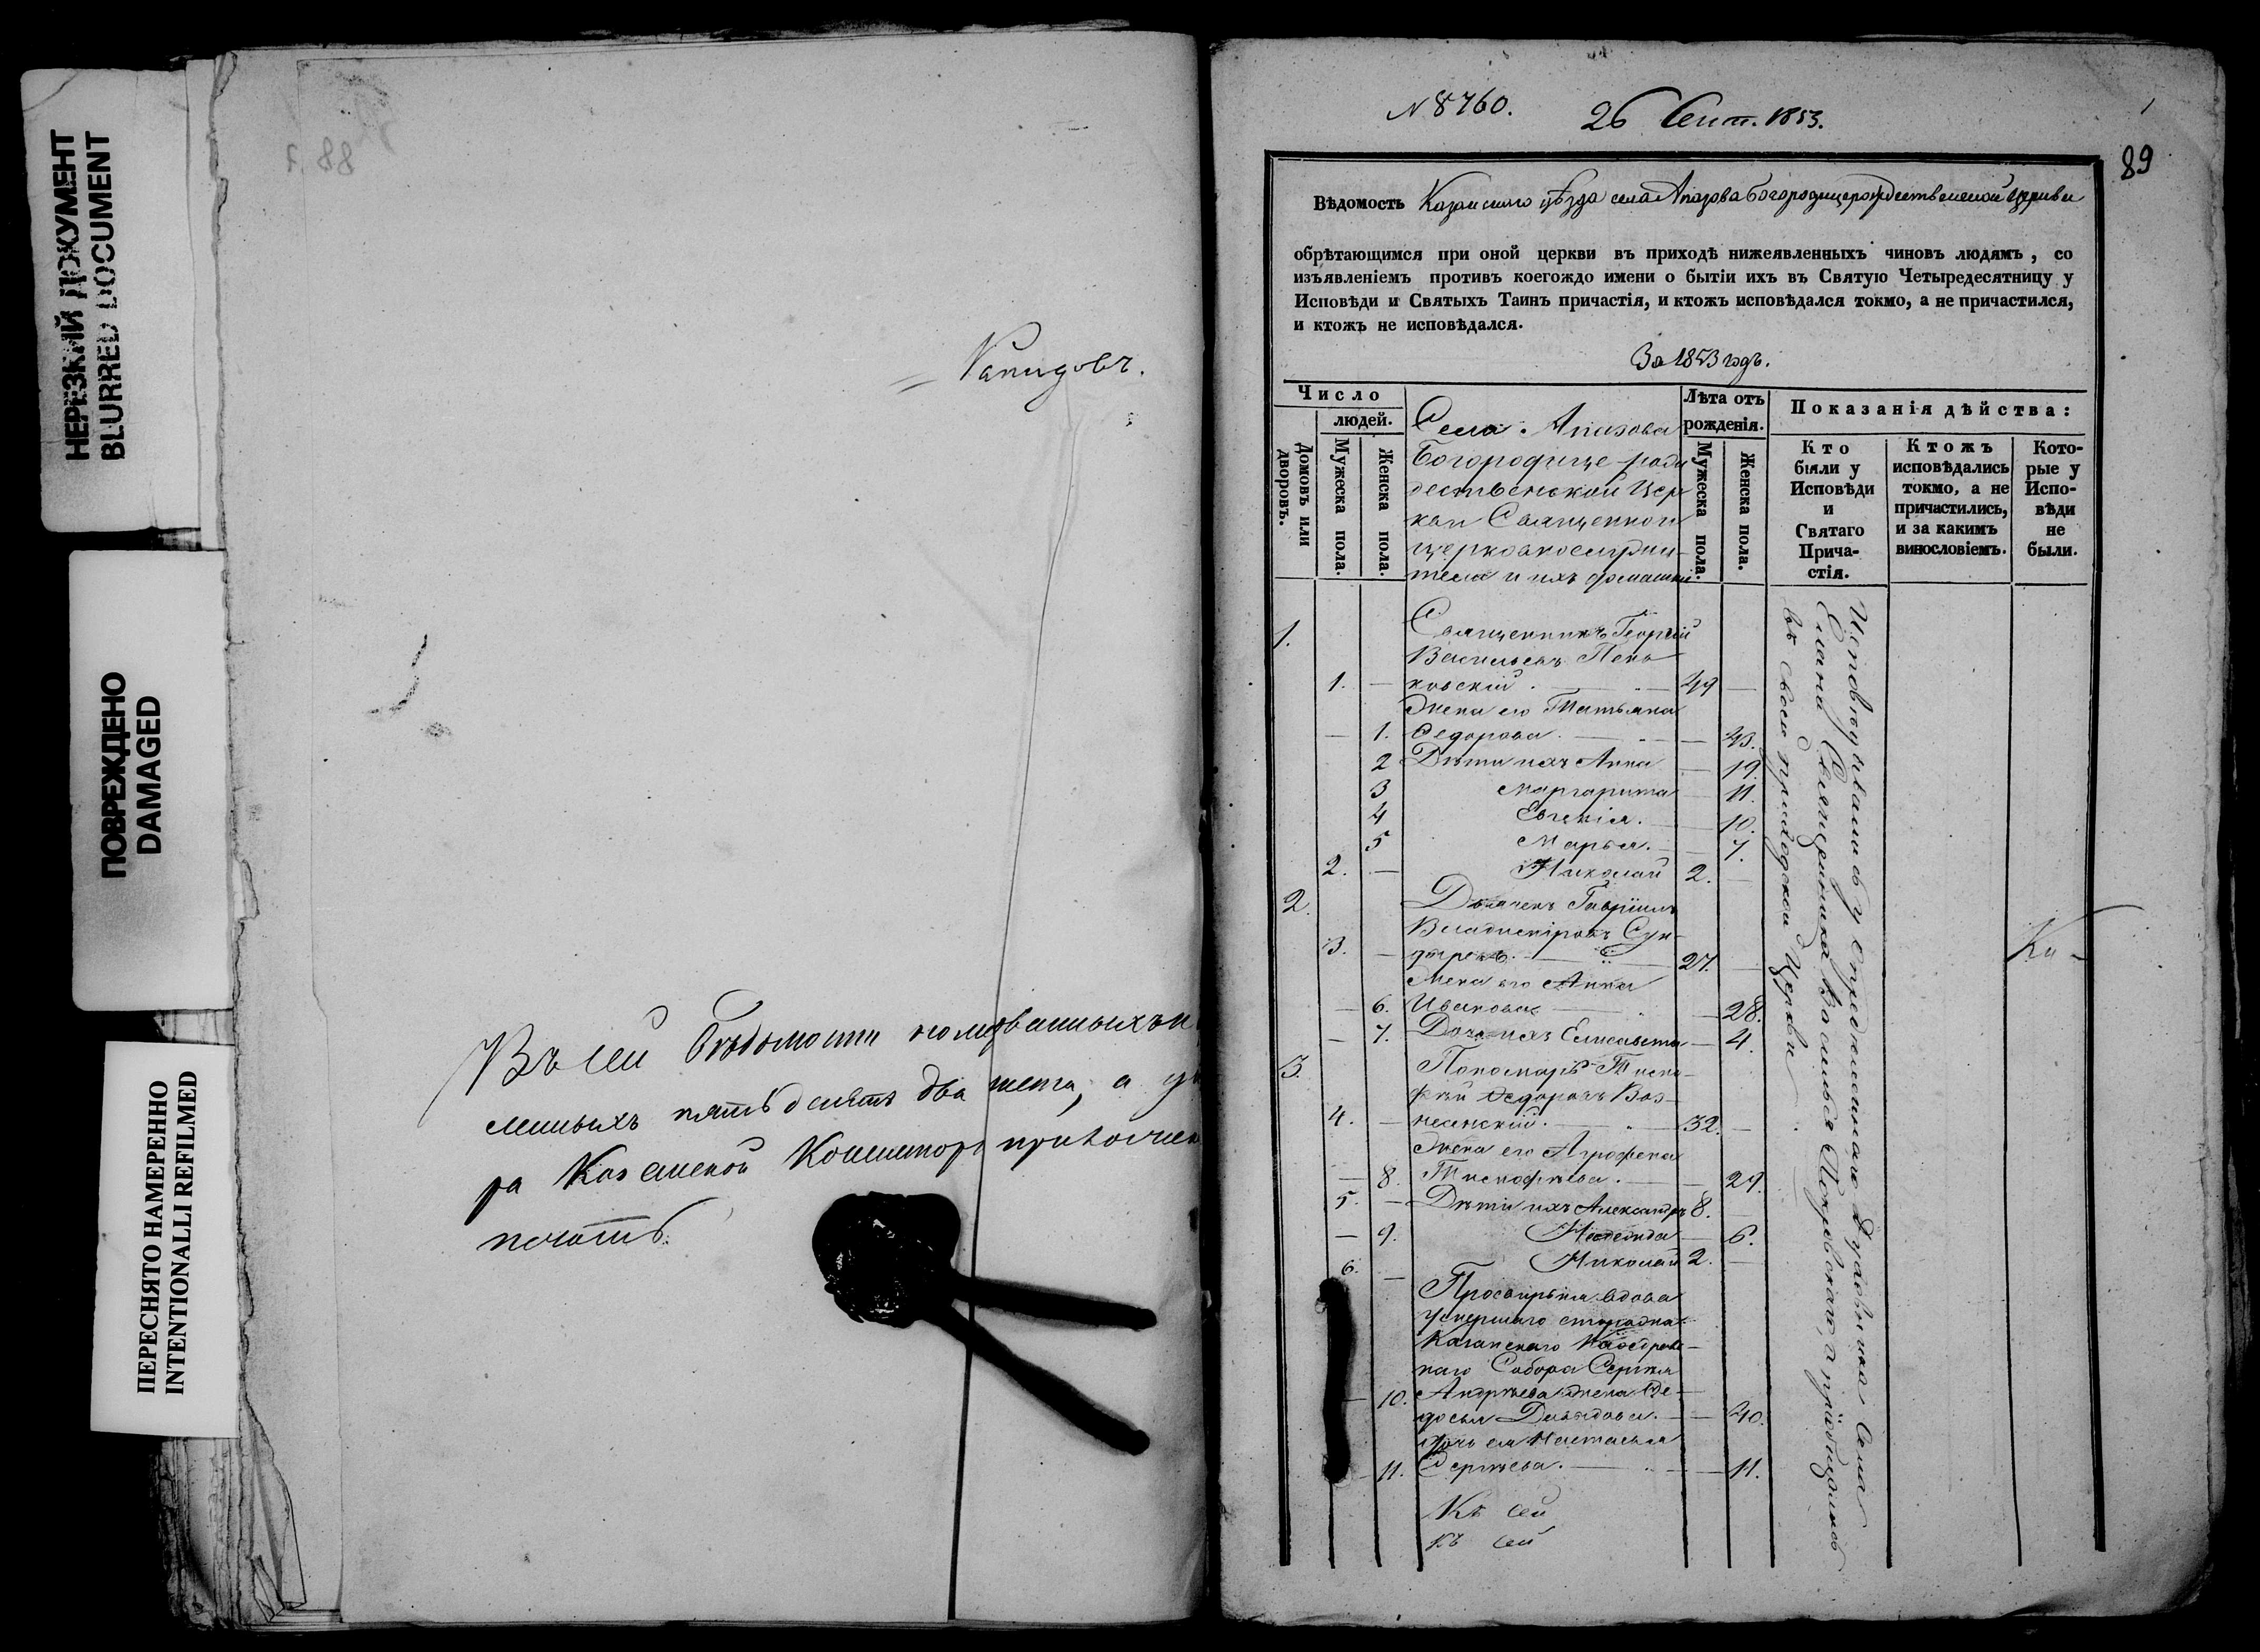 НЕРЕЗКИЙ ДОКУМЕНТ
BLURRED DOCUMENT
ПОВРЕЖДЕНО
DAMAGED
ПЕРЕСНЯТО НАМЕРЕННО
INTENTIONALLI REFILMED
88
Въ сей Вѣдомости
пятьдесятъ два листа, а
ра Казанской
печать.
№ 8760. 26 Сент. 1853.
89
Вѣдомость Казанскаго уѣзда села Апазова Богородицерождественской церкви
обрѣтающимся при оной церкви въ приходѣ нижеявленныхъ чиновъ людямъ, со
изъявленіемъ противъ коегождо имени о бытіи ихъ въ Святую Четыредесятницу у
Исповѣди и Святыхъ Таинъ причастія, и ктожъ исповѣдался токмо, а не причастился,
и ктожъ не исповѣдался.
За 1853 годъ.
Число
людей.
Домовъ или дворовъ.
Мужеска пола.
Женска пола.
Села Апазова
Богородице-рож
дественской Цер
кви Священно и
церковнослужи-
тели и ихъ домашніе
Лѣта отъ рожденія.
Мужеска пола.
Женска пола.
Показанія дѣйства:
Кто были у Исповѣди и Святаго Причастія.
Ктожъ исповѣдались токмо, а не причастились, и за какимъ винословіемъ.
Которые у Исповѣди не были.
1. Священникъ Георгій
Васильевъ Пень
1. — ковскій. — 49 —
Жена его Татьяна
— 1. Ѳедорова. — — 43.
2 Дѣти ихъ Анна — 19.
3 Маргарита — 11.
4 Евгенія. — 10.
5 Марья. — 7.
2. — Николай 2. —
2. Дьячекъ Гавріилъ
Владиміровъ Сун-
3. — дыревъ. — 27. —
Жена его Анна
— 6. Иванова — — 28.
— 7. Дочь ихъ Елисавета — 4.
3. Пономарь Тимо-
фей Ѳедоровъ Воз-
4. — несенскій. — 32. —
Жена его Агрофена
— 8. Тимофѣева. — — 29.
5. — Дѣти ихъ Александръ 8. —
— 9. Надежда — 6.
6. — Николай 2. —
Просвирьня вдова
умершаго
Казанскаго Каѳедраль-
наго Собора Сергѣя
— 10. Андрѣева жена Ѳе-
досья Давыдова. — — 40.
дочь ея Настасья
— 11. Сергѣева. — — 11.
Исповѣдывались у
Священника Василья Покровскаго, и пріобщались
въ своей приходской Церкви.
Къ сей
къ сей